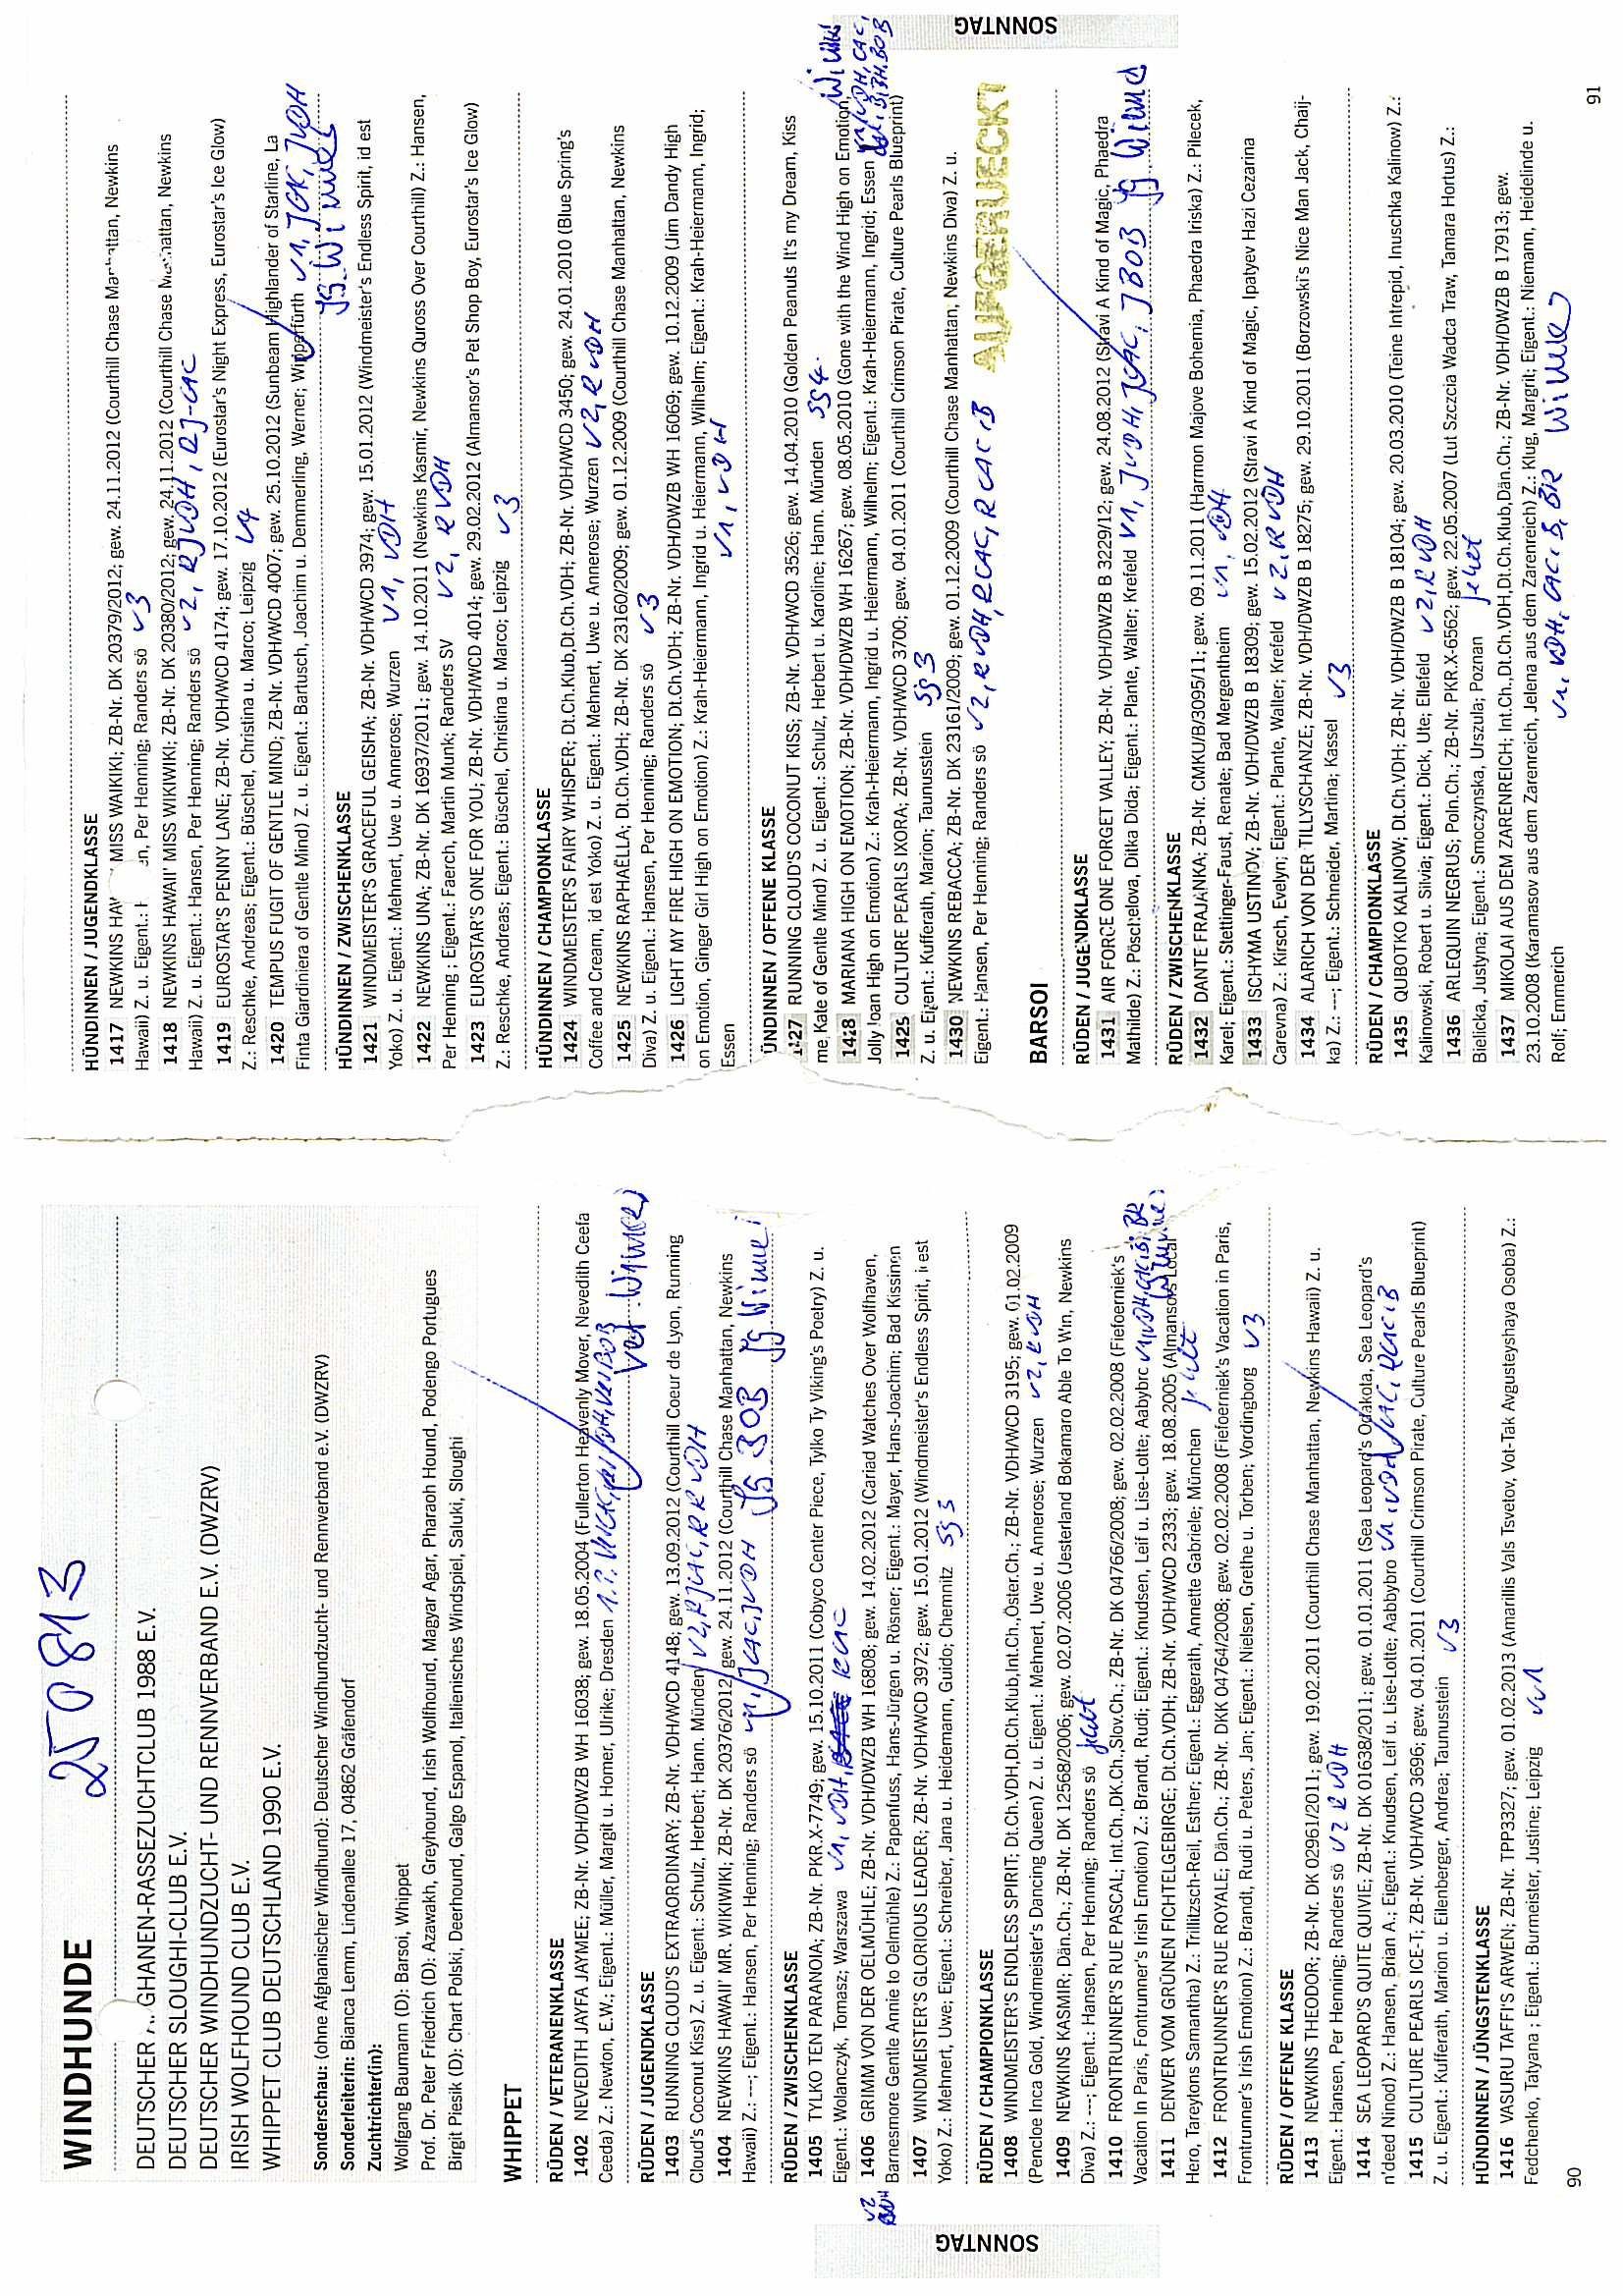 WINDHUNDE
25 08 13
DEUTSCHER GHANEN-RASSEZUCHTCLUB 1988 E.V.
DEUTSCHER SLOUGHI-CLUB E.V.
DEUTSCHER WINDHUNDZUCHT- UND RENNVERBAND E.V. (DWZRV)
IRISH WOLFHOUND CLUB E.V.
WHIPPET CLUB DEUTSCHLAND 1990 E.V.
Sonderschau: (ohne Afghanischer Windhund): Deutscher Windhundzucht- und Rennverband e.V. (DWZRV)
Sonderleiterin: Bianca Lemm, Lindenallee 17, 04862 Gräfendorf
Zuchtrichter(in):
Wolfgang Baumann (D): Barsoi, Whippet
Prof. Dr. Peter Friedrich (D): Azawakh, Greyhound, Irish Wolfhound, Magyar Agar, Pharaoh Hound, Podengo Portugues
Birgit Piesik (D): Chart Polski, Deerhound, Galgo Espanol, Italienisches Windspiel, Saluki, Sloughi
WHIPPET
RÜDEN / VETERANENKLASSE
1402 NEVEDITH JAYFA JAYMEE; ZB-Nr. VDH/DWZB WH 16038; gew. 18.05.2004 (Fullerton Heavenly Mover, Nevedith Ceefa
Ceeda) Z.: Newton, E.W.; Eigent.: Müller, Margit u. Homer, Ulrike; Dresden
Vet. Winner
RÜDEN / JUGENDKLASSE
1403 RUNNING CLOUD'S EXTRAORDINARY; ZB-Nr. VDH/WCD 4148; gew. 13.09.2012 (Courthill Coeur de Lyon, Running
Cloud's Coconut Kiss) Z. u. Eigent.: Schulz, Herbert; Hann. Münden V2, RJCAC, RRVDH
1404 NEWKINS HAWAII' MR. WIKIWIKI; ZB-Nr. DK 20376/2012; gew. 24.11.2012 (Courthill Chase Manhattan, Newkins
Hawaii) Z.: ---; Eigent.: Hansen, Per Henning; Randers sö V1, JCAC, JVDH Jg BOB Jg Winner
RÜDEN / ZWISCHENKLASSE
1405 TYLKO TEN PARANOIA; ZB-Nr. PKR.X-7749; gew. 15.10.2011 (Cobyco Center Piece, Tylko Ty Viking's Poetry) Z. u.
Eigent.: Wolanczyk, Tomasz; Warszawa V1, VDH, RCAC
1406 GRIMM VON DER OELMÜHLE; ZB-Nr. VDH/DWZB WH 16808; gew. 14.02.2012 (Cariad Watches Over Wolfhaven,
Barnesmore Gentle Annie to Oelmühle) Z.: Papenfuss, Hans-Jürgen u. Rösner; Eigent.: Mayer, Hans-Joachim; Bad Kissingen
V2
1407 WINDMEISTER'S GLORIOUS LEADER; ZB-Nr. VDH/WCD 3972; gew. 15.01.2012 (Windmeister's Endless Spirit, id est
Yoko) Z.: Mehnert, Uwe; Eigent.: Schreiber, Jana u. Heidemann, Guido; Chemnitz Sg 3
RÜDEN / CHAMPIONKLASSE
1408 WINDMEISTER'S ENDLESS SPIRIT; Dt.Ch.VDH,Dt.Ch.Klub,Int.Ch.,Öster.Ch.; ZB-Nr. VDH/WCD 3195; gew. 01.02.2009
(Pencloe Inca Gold, Windmeister's Dancing Queen) Z. u. Eigent.: Mehnert, Uwe u. Annerose; Wurzen V2, RVDH
1409 NEWKINS KASMIR; Dän.Ch.; ZB-Nr. DK 12568/2006; gew. 02.07.2006 (Jesterland Bokamaro Able To Win, Newkins
Diva) Z.: ---; Eigent.: Hansen, Per Henning; Randers sö fehlt
1410 FRONTRUNNER'S RUE PASCAL; Int.Ch.,DK.Ch.,Slov.Ch.; ZB-Nr. DK 04766/2008; gew. 02.02.2008 (Fiefoerniek's
Vacation In Paris, Fontrunner's Irish Emotion) Z.: Brandt, Rudi; Eigent.: Knudsen, Leif u. Lise-Lotte; Aabybro V1, VDH, CACIB, BR
Winner
1411 DENVER VOM GRÜNEN FICHTELGEBIRGE; Dt.Ch.VDH; ZB-Nr. VDH/WCD 2333; gew. 18.08.2005 (Almansors Local
Hero, Tareytons Samantha) Z.: Trillitzsch-Reil, Esther; Eigent.: Eggerath, Annette Gabriele; München fehlt
1412 FRONTRUNNER'S RUE ROYALE; Dän.Ch.; ZB-Nr. DKK 04764/2008; gew. 02.02.2008 (Fiefoerniek's Vacation in Paris,
Frontrunner's Irish Emotion) Z.: Brandt, Rudi u. Peters, Jan; Eigent.: Nielsen, Grethe u. Torben; Vordingborg V3
RÜDEN / OFFENE KLASSE
1413 NEWKINS THEODOR; ZB-Nr. DK 02961/2011; gew. 19.02.2011 (Courthill Chase Manhattan, Newkins Hawaii) Z. u.
Eigent.: Hansen, Per Henning; Randers sö V2 RVDH
1414 SEA LEOPARD'S QUITE QUIVIE; ZB-Nr. DK 01638/2011; gew. 01.01.2011 (Sea Leopard's Odakola, Sea Leopard's
n'deed Ninod) Z.: Hansen, Brian A.; Eigent.: Knudsen, Leif u. Lise-Lotte; Aabbybro V1, VDH, CAC, RCACIB
1415 CULTURE PEARLS ICE-T; ZB-Nr. VDH/WCD 3696; gew. 04.01.2011 (Courthill Crimson Pirate, Culture Pearls Blueprint)
Z. u. Eigent.: Kufferath, Marion u. Eilenberger, Andrea; Taunusstein V3
HÜNDINNEN / JÜNGSTENKLASSE
1416 VASURU TAFFI'S ARWEN; ZB-Nr. TPP3327; gew. 01.02.2013 (Amarillis Vals Tsvetov, Vot-Tak Avgusteyshaya Osoba) Z.:
Fedchenko, Tatyana ; Eigent.: Burmeister, Justine; Leipzig VV1
90
SONNTAG
HÜNDINNEN / JUGENDKLASSE
1417 NEWKINS MISS WAIKIKI; ZB-Nr. DK 20379/2012; gew. 24.11.2012 (Courthill Chase Newkins
Hawaii) Z. u. Eigent.: Per Henning; Randers sö V3
1418 NEWKINS HAWAII' MISS WIKIWIKI; ZB-Nr. DK 20380/2012; gew. 24.11.2012 (Courthill Chase Manhattan, Newkins
Hawaii) Z. u. Eigent.: Hansen, Per Henning; Randers sö V2, RJVDH, RJ-CAC
1419 EUROSTAR'S PENNY LANE; ZB-Nr. VDH/WCD 4174; gew. 17.10.2012 (Eurostar's Night Express, Eurostar's Ice Glow)
Z.: Reschke, Andreas; Eigent.: Büschel, Christina u. Marco; Leipzig V4
1420 TEMPUS FUGIT OF GENTLE MIND; ZB-Nr. VDH/WCD 4007; gew. 25.10.2012 (Sunbeam Highlander of Starline, La
Finta Giardiniera of Gentle Mind) Z. u. Eigent.: Bartusch, Joachim u. Demmerling, Werner; Wipperfürth V1, JCAC, JVDH
Jg. Winner
HÜNDINNEN / ZWISCHENKLASSE
1421 WINDMEISTER'S GRACEFUL GEISHA; ZB-Nr. VDH/WCD 3974; gew. 15.01.2012 (Windmeister's Endless Spirit, id est
Yoko) Z. u. Eigent.: Mehnert, Uwe u. Annerose; Wurzen V1, VDH
1422 NEWKINS UNA; ZB-Nr. DK 16937/2011; gew. 14.10.2011 (Newkins Kasmir, Newkins Quross Over Courthill) Z.: Hansen,
Per Henning ; Eigent.: Faerch, Martin Munk; Randers SV V2, RVDH
1423 EUROSTAR'S ONE FOR YOU; ZB-Nr. VDH/WCD 4014; gew. 29.02.2012 (Almansor's Pet Shop Boy, Eurostar's Ice Glow)
Z.: Reschke, Andreas; Eigent.: Büschel, Christina u. Marco; Leipzig V3
HÜNDINNEN / CHAMPIONKLASSE
1424 WINDMEISTER'S FAIRY WHISPER; Dt.Ch.Klub,Dt.Ch.VDH; ZB-Nr. VDH/WCD 3450; gew. 24.01.2010 (Blue Spring's
Coffee and Cream, id est Yoko) Z. u. Eigent.: Mehnert, Uwe u. Annerose; Wurzen V2, RVDH
1425 NEWKINS RAPHAËLLA; Dt.Ch.VDH; ZB-Nr. DK 23160/2009; gew. 01.12.2009 (Courthill Chase Manhattan, Newkins
Diva) Z. u. Eigent.: Hansen, Per Henning; Randers sö V3
1426 LIGHT MY FIRE HIGH ON EMOTION; Dt.Ch.VDH; ZB-Nr. VDH/DWZB WH 16069; gew. 10.12.2009 (Jim Dandy High
on Emotion, Ginger Girl High on Emotion) Z.: Krah-Heiermann, Ingrid u. Heiermann, Wilhelm; Eigent.: Krah-Heiermann, Ingrid;
Essen V1, VDH
ÜNDINNEN / OFFENE KLASSE
1427 RUNNING CLOUD'S COCONUT KISS; ZB-Nr. VDH/WCD 3526; gew. 14.04.2010 (Golden Peanuts It's my Dream, Kiss
me, Kate of Gentle Mind) Z. u. Eigent.: Schulz, Herbert u. Karoline; Hann. Münden SG4
1428 MARIANA HIGH ON EMOTION; ZB-Nr. VDH/DWZB WH 16267; gew. 08.05.2010 (Gone with the Wind High on Emotion,
Jolly Joan High on Emotion) Z.: Krah-Heiermann, Ingrid u. Heiermann, Wilhelm; Eigent.: Krah-Heiermann, Ingrid; Essen V1, VDH, CAC,
1429 CULTURE PEARLS IXORA; ZB-Nr. VDH/WCD 3700; gew. 04.01.2011 (Courthill Crimson Pirate, Culture Pearls Blueprint)
Z. u. Eigent.: Kufferath, Marion; Taunusstein Sg 3
1430 NEWKINS REBACCA; ZB-Nr. DK 23161/2009; gew. 01.12.2009 (Courthill Chase Manhattan, Newkins Diva) Z. u.
Eigent.: Hansen, Per Henning; Randers sö V2, RVDH, RCAC, RCACIB
AUFGERUECKT
BARSOI
RÜDEN / JUGENDKLASSE
1431 AIR FORCE ONE FORGET VALLEY; ZB-Nr. VDH/DWZB B 3229/12; gew. 24.08.2012 (Stravi A Kind of Magic, Phaedra
Mathilde) Z.: Pöschelova, Ditka Dida; Eigent.: Plante, Walter; Krefeld V1, JVDH, JCAC, JBOB Jg Winner
RÜDEN / ZWISCHENKLASSE
1432 DANTE FRAJANKA; ZB-Nr. CMKU/B/3095/11; gew. 09.11.2011 (Harmon Majove Bohemia, Phaedra Iriska) Z.: Piecek,
Karel; Eigent.: Stettinger-Faust, Renate; Bad Mergentheim V1, VDH
1433 ISCHYMA USTINOV; ZB-Nr. VDH/DWZB B 18309; gew. 15.02.2012 (Stravi A Kind of Magic, Ipatyev Hazi Cezarina
Carevna) Z.: Kirsch, Evelyn; Eigent.: Plante, Walter; Krefeld V2, RVDH
1434 ALARICH VON DER TILLYSCHANZE; ZB-Nr. VDH/DWZB B 18275; gew. 29.10.2011 (Borzowski's Nice Man Jack, Chaij-
ka) Z.: ---; Eigent.: Schneider, Martina; Kassel V3
RÜDEN / CHAMPIONKLASSE
1435 QUBOTKO KALINOW; Dt.Ch.VDH; ZB-Nr. VDH/DWZB B 18104; gew. 20.03.2010 (Teine Intrepid, Inuschka Kalinow) Z.:
Kalinowski, Robert u. Silvia; Eigent.: Dick, Ute; Ellefeld V2, RVDH
1436 ARLEQUIN NEGRUS; Poln.Ch.; ZB-Nr. PKR.X-6562; gew. 22.05.2007 (Lut Szczcia Wadca Traw, Tamara Hortus) Z.:
Bielicka, Justyna; Eigent.: Smoczynska, Urszula; Poznan fehlt
1437 MIKOLAI AUS DEM ZARENREICH; Int.Ch.,Dt.Ch.VDH,Dt.Ch.Klub,Dän.Ch.; ZB-Nr. VDH/DWZB B 17913; gew.
23.10.2008 (Karamasov aus dem Zarenreich, Jelena aus dem Zarenreich) Z.: Klug, Margrit; Eigent.: Niemann, Heidelinde u.
Rolf; Emmerich V1, VDH, CACIB, BR Winner
91
SONNTAG